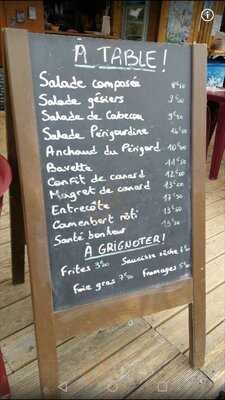 À TABLE !
Salade composée 8€50
Salade gésiers 9€00
Salade de Cabecou 9€50
Salade Périgourdine
Anchaud du Périgord
Bavette 11€50
Confit de canard 12€00
Magret de canard
Entrecôte
Camembert rôti
Santé bonheur
À GRIGNOTER !
Frites 3€00 Saucisse sèche
Foie gras 7€50 fromages